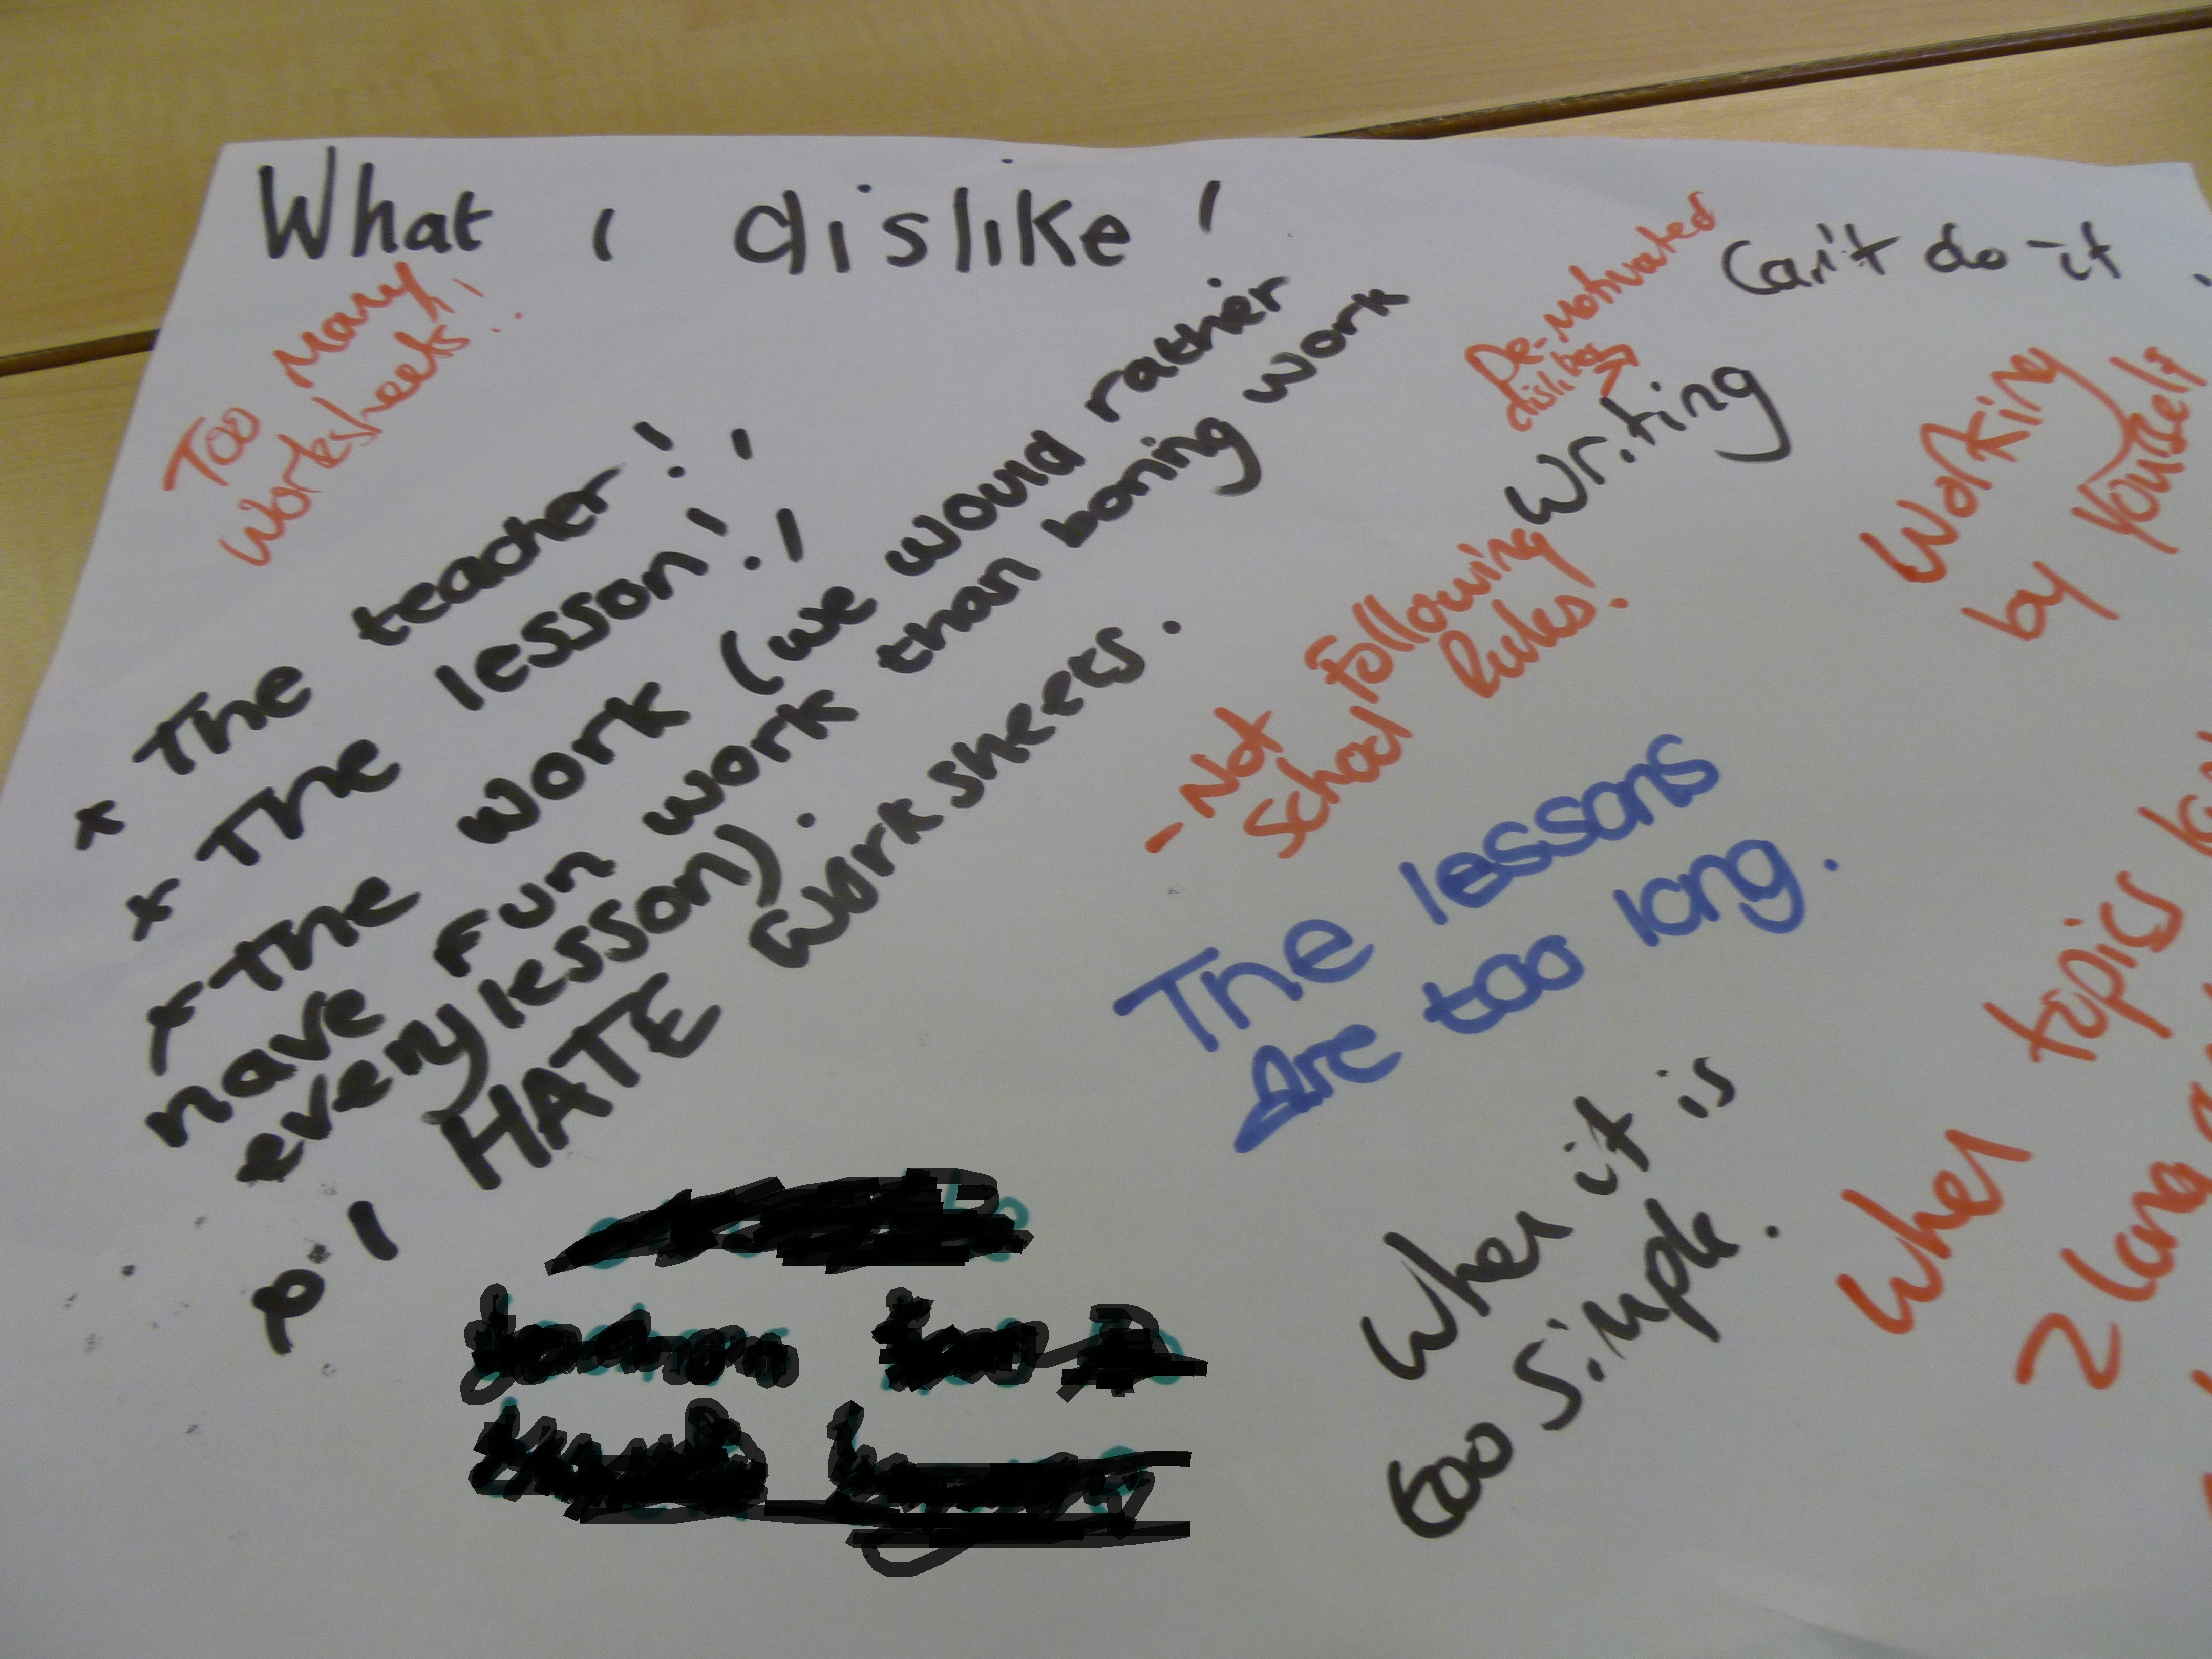 What I dislike!
Too Many
Worksheets!!
x The teacher!!
x The lesson!!
x The work (we would rather
have fun work than boring work
every lesson).
I HATE work sheets.
De-Motivated
dislikes
Can't do it
Writing
Working
by Youself
- Not following
School Rules.
The lessons
Are too long.
When it is
too simple.
When topics
2 long